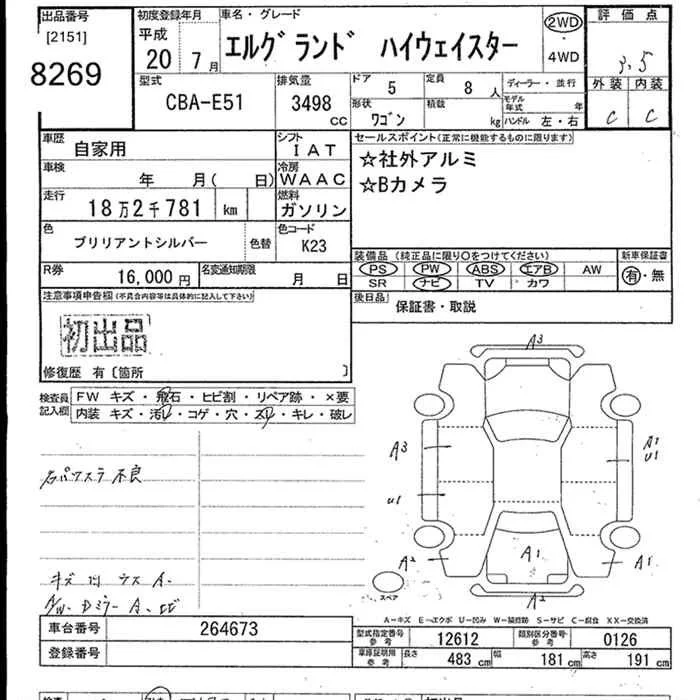 出品番号 初度登録年月 車名・グレード 評価点
[2151] 平成
8269 20年 7月 エルグランド ハイウェイスター 2WD・4WD 3.5
型式 排気量 ドア 5 定員 8人 ディーラー・並行 外装 内装
CBA-E51 3498cc 形状 ワゴン 積載 kg モデル年式 年 ハンドル 左・右 C C
車歴 自家用 シフト IAT セールスポイント(正常に機能するものに限ります)
車検 年 月( 日) 冷房 WAAC ☆社外アルミ
走行 18万2千781 km 燃料 ガソリン ☆Bカメラ
色 ブリリアントシルバー 色替 色コード K23
装備品(純正品に限り○をつけてください) 新車保証書
R券 16,000円 名変通知期限 月 日 PS PW ABS エアB AW 有・無
SR ナビ TV カワ
注意事項申告欄(不具合内容等は具体的に記入して下さい) 後日品 保証書・取説
初出品
修復歴 有〔箇所 〕
検査員記入欄 FW キズ・飛石・ヒビ割・リペア跡・×要
内装 キズ・汚レ・コゲ・穴・スレ・キレ・破レ
A3
A3 A1
U1
U1
不良
A2 A1 A1
A2
スペア
A-キズ E-エクボ U-凹み W-補修跡 S-サビ C-腐食 XX-交換済
車台番号 264673
型式指定番号 参考 12612 類別区分番号 参考 0126
登録番号 車庫証明用 参考 長さ 483cm 幅 181cm 高さ 191cm